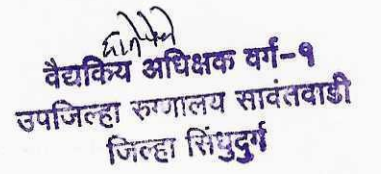 वैद्यकिय अधिक्षक वर्ग-१
उपजिल्हा रुग्णालय सावंतवाडी
जिल्हा सिंधुदुर्ग